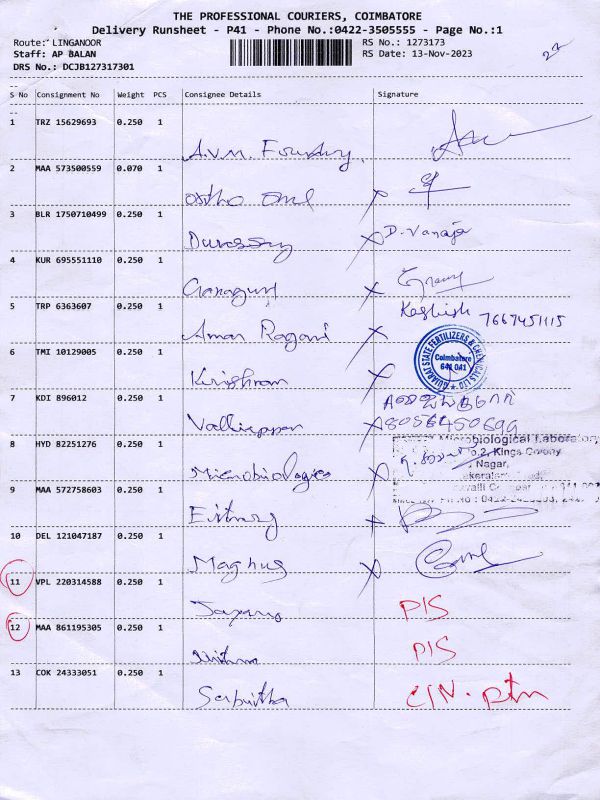 THE PROFESSIONAL COURIERS, COIMBATORE
Delivery Runsheet - P41 - Phone No.:0422-3505555 - Page No.:1
Route: LINGANOOR RS No.: 1273173
Staff: AP BALAN RS Date: 13-Nov-2023
DRS No.: DCJB127317301
S No Consignment No Weight PCS Consignee Details Signature
1 TRZ 15629693 0.250 1
A.V.M. Foundry
2 MAA 573500559 0.070 1
Ortho One X
3 BLR 1750710499 0.250 1
Durassay X D. Vanaja
4 KUR 695551110 0.250 1
X
5 TRP 6363607 0.250 1 7667451115
Amar Ragavi X
6 TMI 10129005 0.250 1 GUJARAT STATE FERTILIZERS & CHEMICALS LTD
Coimbatore
641 041
Krishnan X
7 KDI 896012 0.250 1
Valliappan X 8056450699
8 HYD 82251276 0.250 1 Microbiological Laboratory,
No.2, Kings Colony
Nagar,
Microbiologics X
9 MAA 572758603 0.250 1
X
10 DEL 121047187 0.250 1
X
11 VPL 220314588 0.250 1
PIS
12 MAA 861195305 0.250 1
PIS
13 COK 24333051 0.250 1
Sabuitha